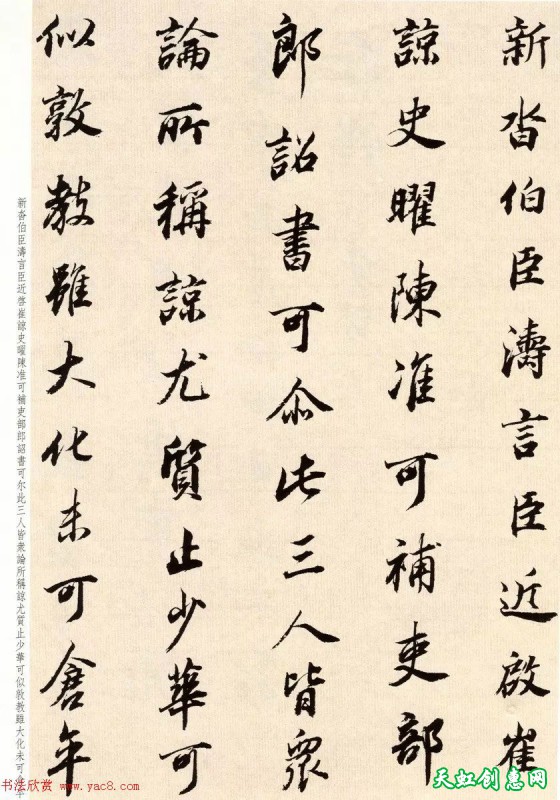 新沓伯臣濤言臣近啟崔
諒史曜陳准可補吏部
郎詔書可尒此三人皆眾
論所稱諒尤質止少華可
似敦教雖大化未可倉卒
新沓伯臣濤言臣近啓崔諒史曜陳准可補吏部郎詔書可尔此三人皆衆論所稱諒尤質止少華可似敦教雖大化未可
书法欣赏 www.yac8.com
天虹创惠网